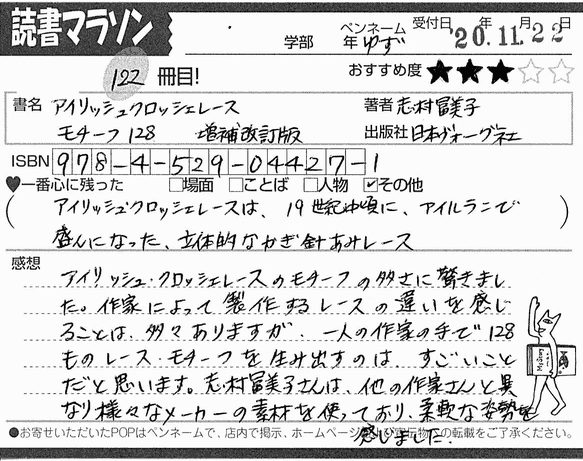 読書マラソン
学部 年 ペンネーム ゆず 受付日 '20.年11.月22日
122 冊目!
おすすめ度 ★★★☆☆
書名 アイリッシュクロッシェレース
モチーフ128 増補改訂版
著者 志村冨美子
出版社 日本ヴォーグ社
ISBN 978-4-529-04427-1
♥一番心に残った □場面 □ことば □人物 ☑その他
(アイリッシュクロッシェレースは、19世紀中頃に、アイルランドで
盛んになった、立体的なかぎ針あみレース)
感想
アイリッシュ・クロッシェレースのモチーフの多さに驚きまし
た。作家によって製作するレースの違いを感じ
ることは、多々ありますが、一人の作家の手で128
ものレース・モチーフを生み出すのは、すごいこと
だと思います。志村冨美子さんは、他の作家さんと異
なり様々なメーカーの素材を使っており、柔軟な姿勢を
感じました。
●お寄せいただいたPOPはペンネームで、店内で掲示、ホームページ 宣伝物への転載をご了承ください。